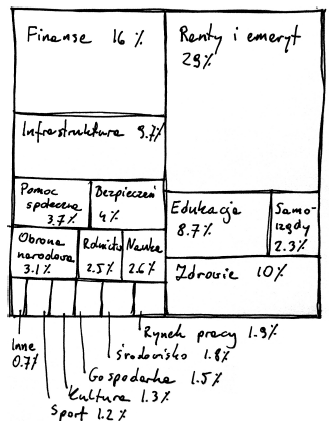 Finanse 16%
Renty i emeryt
29%
Infrastruktura 9.7%
Pomoc
społeczna
3.7%
Bezpieczeń
4%
Edukacja
8.7%
Samo-
rządy
2.3%
Obrona
narodowa
3.1%
Rolnictw
2.5%
Nauka
2.6%
Zdrowie 10%
Rynek pracy 1.9%
Środowisko 1.8%
Gospodarka 1.5%
Kultura 1.3%
Sport 1.2%
Inne
0.7%